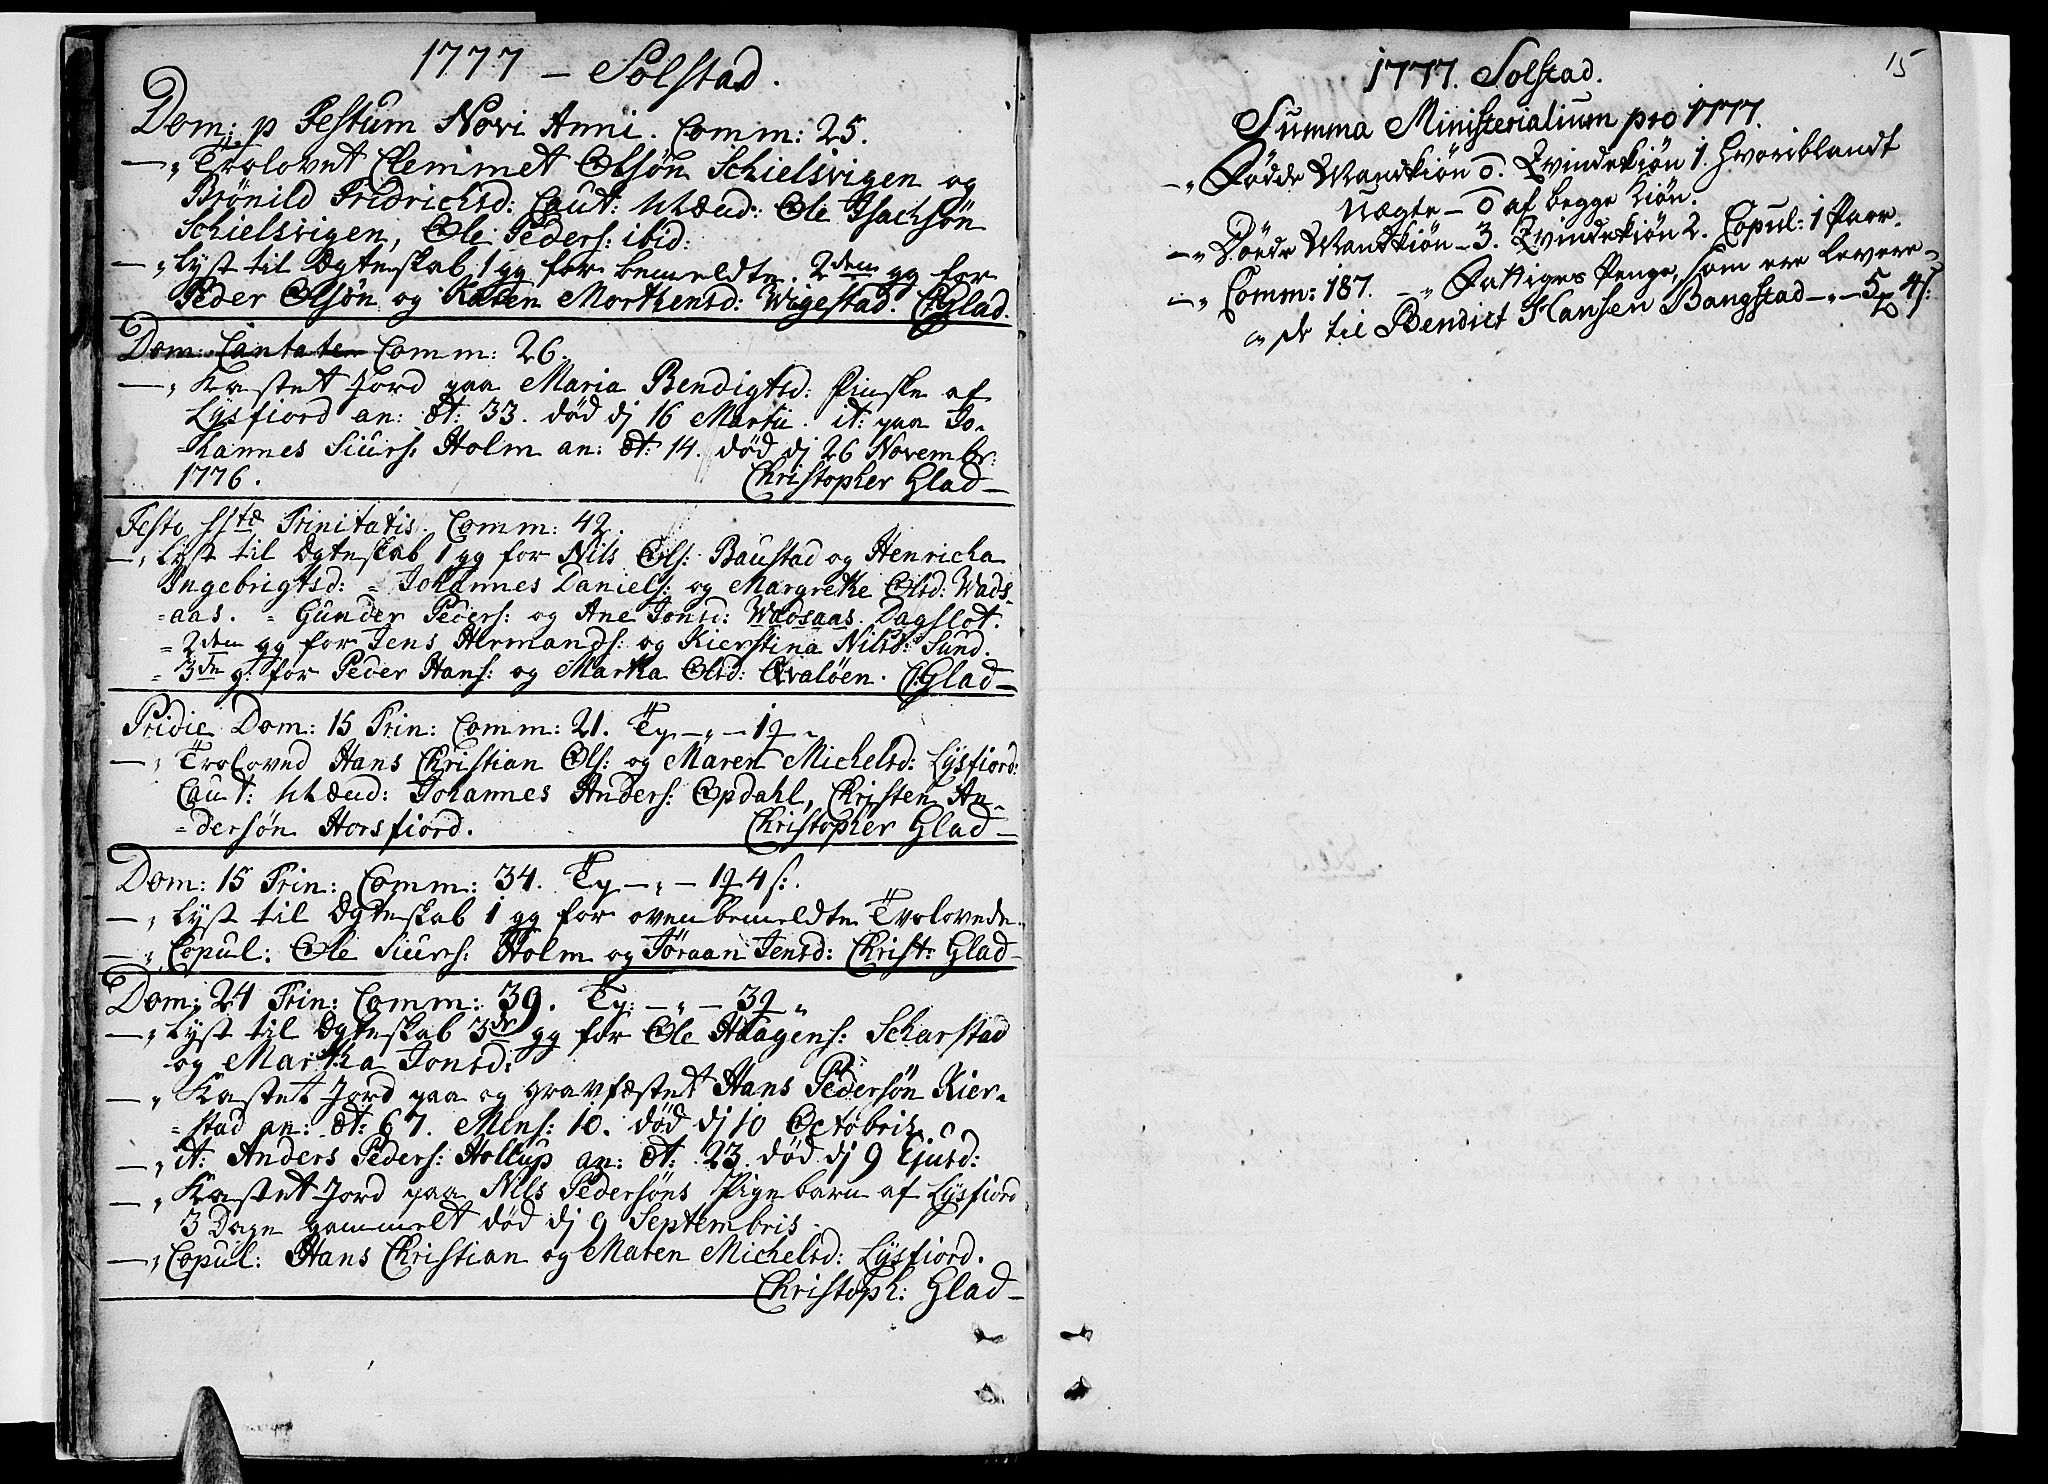 1777 – Solstad.
Dom: p Festum Novi Anni. Comm: 25.
—„ Trolovet Clemmet Olsøn Schielsvigen og
Brönild Fridrichsd: Caut: Mænd: Ole Isachsøn
Schielsvigen, Ole Peders: ibid:
—„ Lyst til Ægteskab 1 gg for bemeldte. 2den gg for
Peder Olsøn og Karen Morthensd: Wigestad. C: Glad.
Dom: Cantate Comm: 26.
—„ Kastet Jord paa Maria Bendigtsd: af
Lysfiord an: æt: 33. død dj 16 Martii. it: paa Jo-
=hannes Siurs: Holm an: æt: 14. død dj 26 Novembr:
1776. Christopher Glad—
Festo SStæ Trinitatis. Comm: 42.
—„ Lyst til Ægteskab 1 gg for Nils Ols: Baustad og Henricha
Ingebrigtsd: = Johannes Daniels: og Margrethe Olsd: Wads-
=aas. = Gunder Peders: og Ane Jonsd: Wadsaas. Dagslot.
= 2den gg for Jens Hermands: og Kierstina Nilsd: Sund.
= 3de g: for Peder Hans: og Martha Olsd: Qvaløen. C: Glad—
Pridie Dom: 15 Trin: Comm: 21. Tv—„—1
—„ Troloved Hans Christian Ols: og Maren Michelsd: Lysfiord:
Caut: Mænd: Johannes Anders: Opdahl, Christen An-
=dersøn Horsfiord. Christopher Glad—
Dom: 15 Trin: Comm: 34. Tv—„—1 4 s:
—„ Lyst til Ægteskab 1 gg for ovenbemeldte Trolovede.
—„ Copul: Ole Siurs: Holm og Jöraan Jensd: Christ: Glad—
Dom: 24 Trin: Comm: 39. Tv:—„—3
—„ Lyst til Ægteskab 3de gg for Ole Haagens: Scharstad
og Martha Jonsd:
—„ Kastet Jord paa og gravfæstet Hans Pedersøn Kier-
=stad an: æt: 67. Mens: 10. død dj 10 Octobris.
—„ it: Anders Peders: Hollup an: æt: 23. død dj 9 Ejusd:
—„ Kastet Jord paa Nils Pedersøns Pigebarn af Lysfiord
3 Dage gammelt død dj 9 Septembris.
—„ Copul: Hans Christian og Maren Michelsd: Lysfiord.
Christoph: Glad—
15
1777. Solstad.
Summa Ministerialium pro 1777.
—„ Fødde Mandkiøn 0. Qvindekiøn 1. hvoriblandt
Uægte – 0 af begge Kiøn.
—„ Døde Mandkiøn – 3. Qvindekiøn 2. Copul: 1 Parr.
—„ Comm: 187. —„ Fattiges Penge, som ere levere-
„ de til Bendict Hansen Bangstad—„—5 4 s: